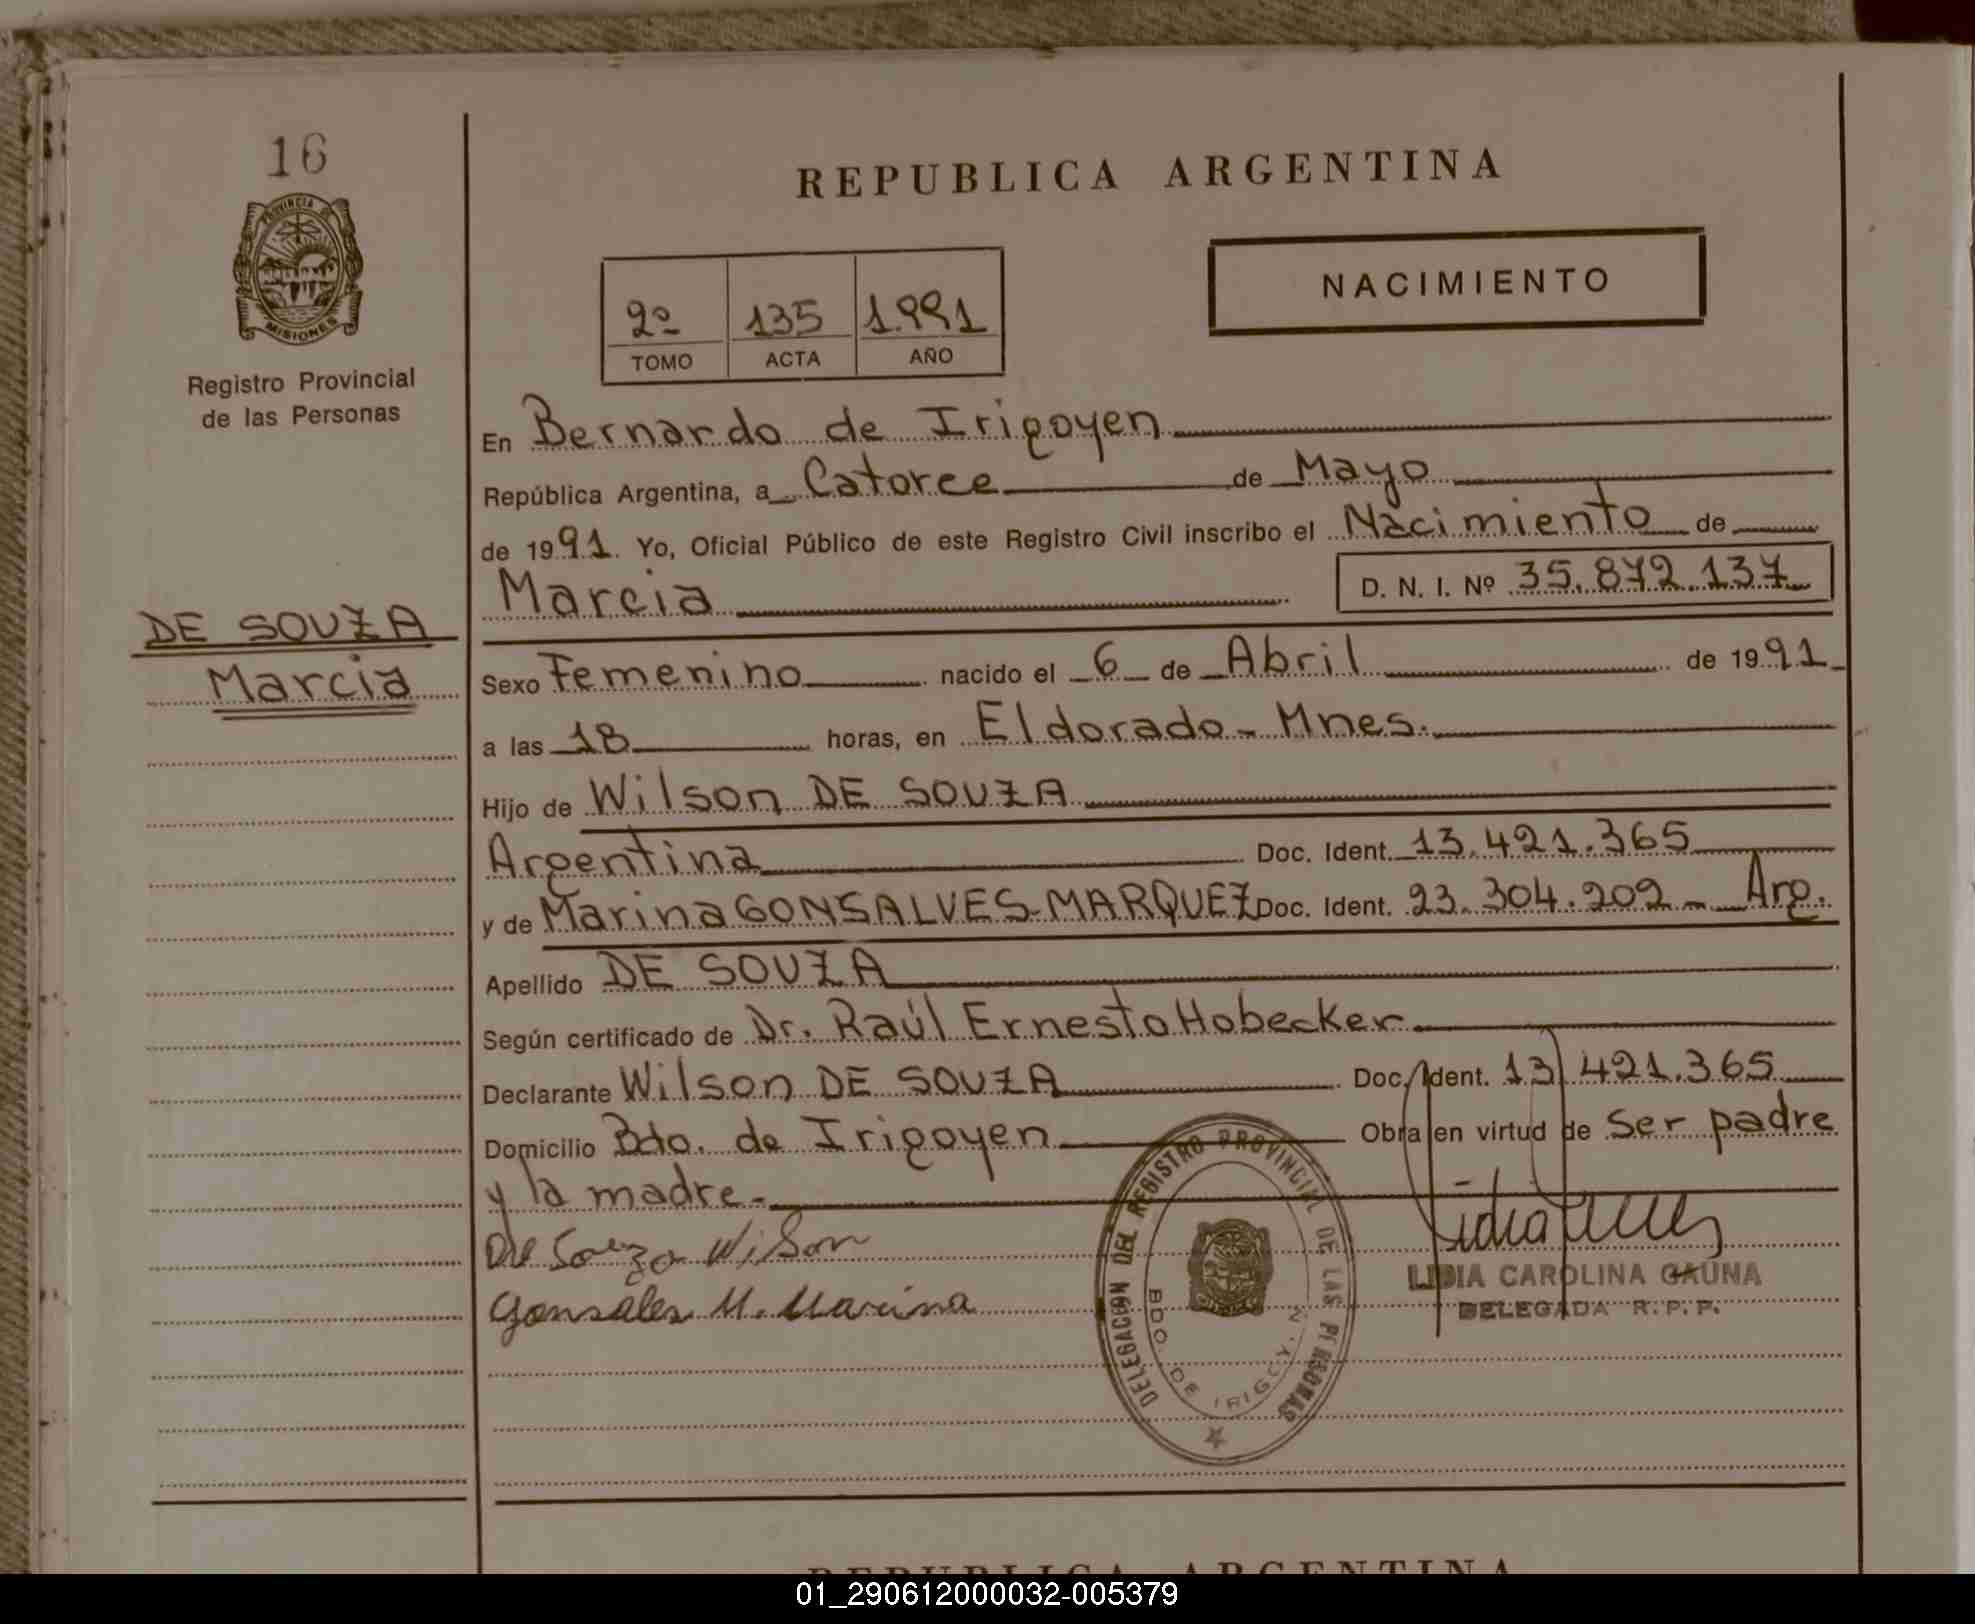 16
PROVINCIA DE
MISIONES
Registro Provincial
de las Personas
DE SOUZA
Marcia
REPUBLICA ARGENTINA
2º 135 1.991
TOMO ACTA AÑO
NACIMIENTO
En Bernardo de Irigoyen
República Argentina, a Catorce de Mayo
de 1991. Yo, Oficial Público de este Registro Civil inscribo el Nacimiento de
Marcia D. N. I. Nº 35.872.137
Sexo Femenino nacido el 6 de Abril de 1991
a las 18 horas, en Eldorado - Mnes.
Hijo de Wilson DE SOUZA
Argentina Doc. Ident. 13.421.365
y de Marina GONSALVES-MARQUEZ Doc. Ident. 23.304.202 - Arg.
Apellido DE SOUZA
Según certificado de Dr. Raúl Ernesto Hobecker
Declarante Wilson DE SOUZA Doc. Ident. 13.421.365
Domicilio Bdo. de Irigoyen Obra en virtud de ser padre
y la madre.-
De Souza Wilson
Gonsales M. Marina
DELEGACION DEL REGISTRO PROVINCIAL DE LAS PERSONAS
BDO. DE IRIGOY. N
LIDIA CAROLINA GAUNA
DELEGADA R. P. P.
REPUBLICA ARGENTINA
01_290612000032-005379